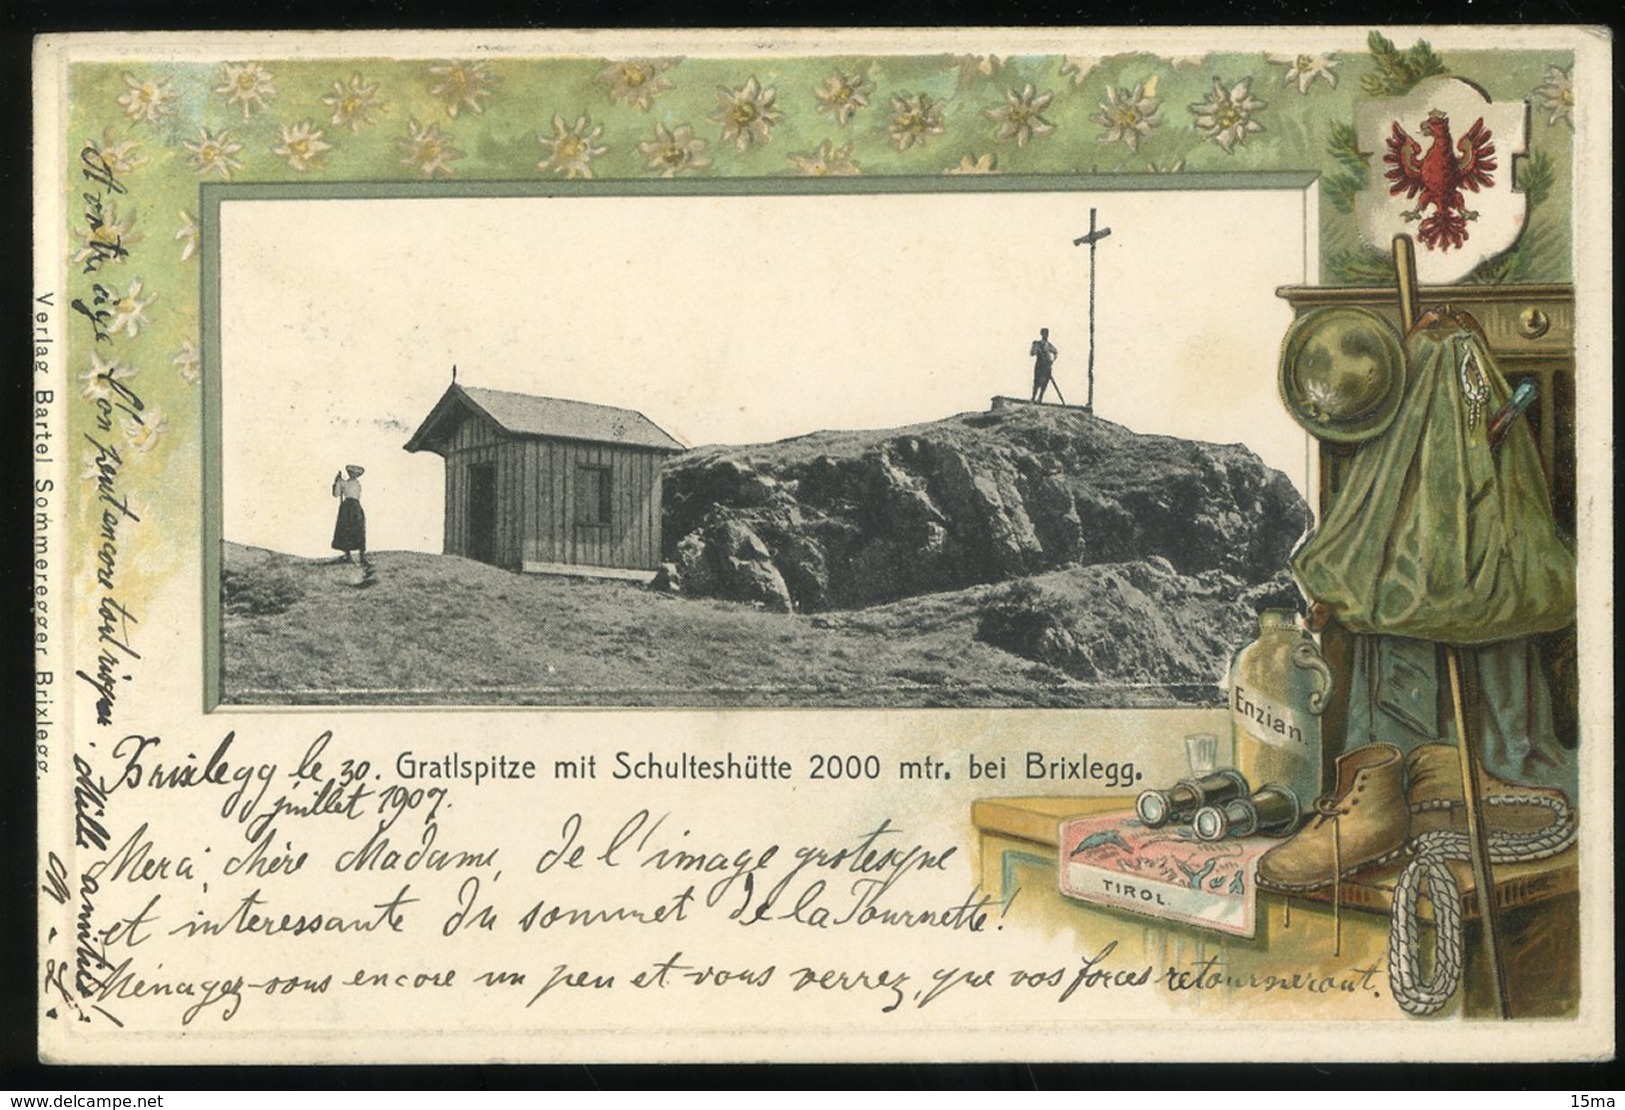 Enzian.
TIROL.
Gratlspitze mit Schulteshütte 2000 mtr. bei Brixlegg.
Brixlegg le 30.
juillet 1907.
Merci, chère Madame, de l'image grotesque
et interessante du sommet de la Tournette!
Ménagez-vous encore un peu et vous verrez, que vos forces retourneront.
A votre âge l'on peut encore tout risquer.
Mille amitiés!
Verlag Bartel Sommeregger Brixlegg.
www.delcampe.net
15ma